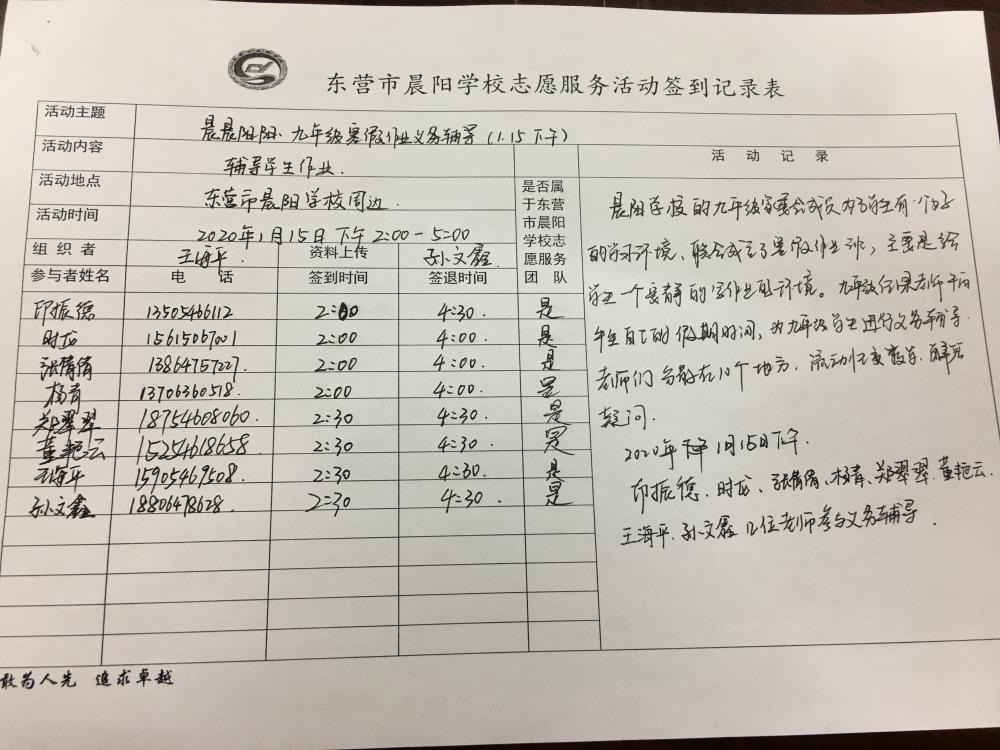 东营市晨阳学校志愿服务活动签到记录表
活动主题 晨晨阳阳、九年级寒假作业义务辅导(1.15下午)
活动内容 辅导学生作业.
活动地点 东营市晨阳学校周边.
活动时间 2020年1月15日下午2:00-5:00
组织者 王海平. 资料上传 孙文鑫.
参与者姓名 电话 签到时间 签退时间
是否属
于东营
市晨阳
学校志
愿服务
团队
印振德 13505466112 2:00 4:30. 是
时龙 15615067001 2:00 4:00. 是
张倩倩 13864757227. 2:00 4:00. 是
杨青 13706360518. 2:00 4:00. 是
郑翠翠 18754608060. 2:30 4:30. 是
董艳云 15254618658 2:30 4:30. 是
王海平 15905469508. 2:30 4:30. 是
孙文鑫 18806478628. 2:30 4:30. 是
活动记录
晨阳学校的九年级家委会成员为了学生有一个好
的学习环境、联合成立了寒假作业班,主要是给
学生一个安静的写作业的环境。九年级任课老师
自己的假期时间,为九年级学生进行义务辅导.
老师们分散在10个地方,流动
疑问.
2020年1月15日下午.
印振德、时龙、张倩倩、杨青、郑翠翠、董艳云、
王海平、孙文鑫几位老师参与义务辅导.
敢为人先 追求卓越